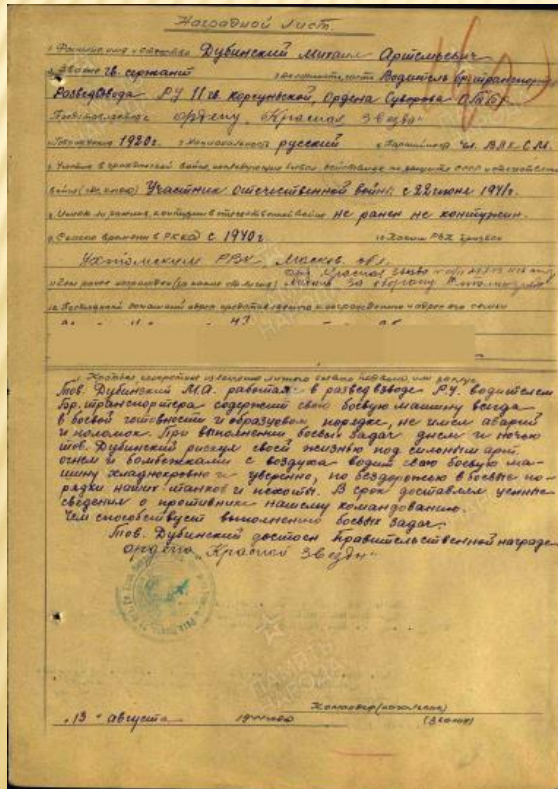 Наградной лист.
1 Фамилия имя и отчество Дубинский Михаил Артемьевич
2 Звание гв. сержант 3 должность, часть Водитель бр. транспортера
Разведвзвода РУ 11 гв. Корсуньской, Ордена Суворова ОТТБр
Представляется ордену "Красная Звезда"
4 Год рождения 1920г. 5 Национальность русский 6 Партийность Чл. ВЛКСМ.
войне (где, когда) Участник отечественной войны с 22 июня 1941г.
8. Имеет ли ранения, контузии в отечественной войне не ранен не контужен.
9. С какого времени в РККА с 1940г. 10 Каким РВК призван
Ухтомским РВК, Москов. обл.
11 Чем ранее награжден (за какие отличия) орд. Красная Звезда
Медаль За оборону Сталинграда
Тов. Дубинский М.А. работая в разведвзводе Р.У. водителем
бр. транспортера содержит свою боевую машину всегда
в боевой готовности и образцовом порядке, не имея аварий
и поломок. При выполнении боевых задач днем и ночью
тов. Дубинский рискуя своей жизнью под сильным арт.
огнем и бомбежками с воздуха водит свою боевую ма-
шину хладнокровно и уверенно, по бездорожью в боевые по-
рядки наших танков и пехоты. В срок доставляет ценные
сведения о противнике нашему командованию.
Чем способствует выполнению боевых задач.
Тов. Дубинский достоин Правительственной награде
ордена "Красной Звезды"
Командир (начальник)
"13" августа 1944 года (звание)
ПАМЯТЬ
НАРОДА